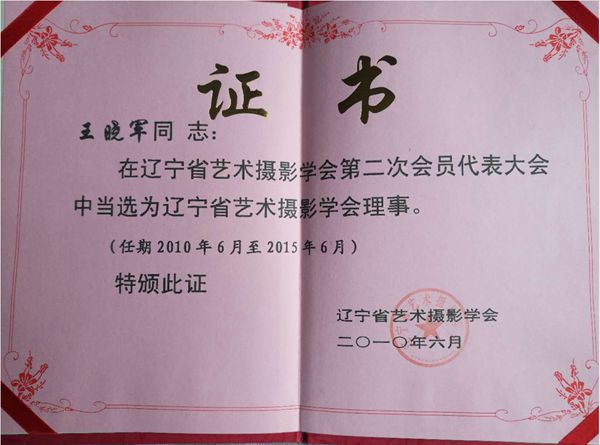 证 书
王晓军同 志：
在辽宁省艺术摄影学会第二次会员代表大会
中当选为辽宁省艺术摄影学会理事。
（任期 2010 年 6 月至 2015 年 6 月）
特颁此证
辽宁省艺术摄影学会
二〇一〇年六月